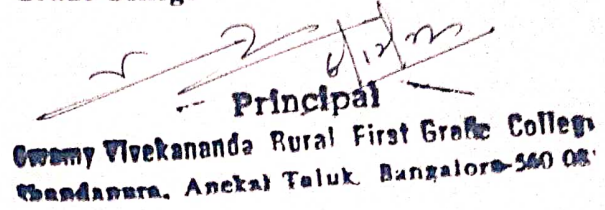 Principal
Swamy Vivekananda Rural First Grade College
Chandapura, Anekal Taluk, Bangalore-560 08